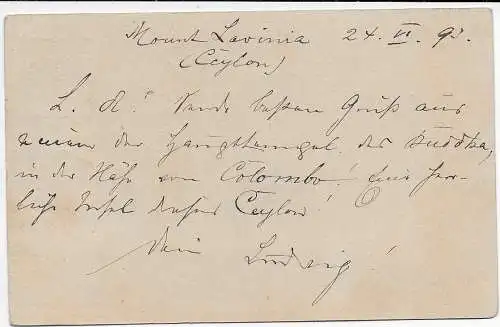 Mount Lavinia 24. VI. 93.
(Ceylon)
L. A.! Sende besten Gruß aus
einem der Haupttempel des Buddha,
in der Nähe von Colombo! Eine herr-
liche Insel dieses Ceylon!
Dein Ludwig!